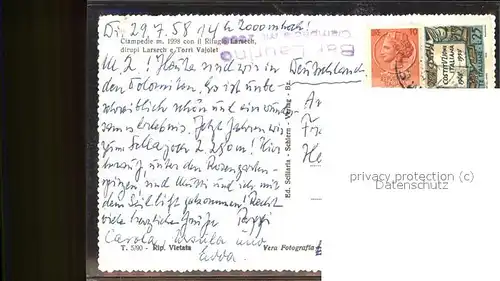 Di. 29.7.58 14 h 2000 m hoch!
Ciampedie m. 1998 con il Rifugio Larsech,
dirupi Larsech e Torri Vajolet
M. L! Heute sind wir in
den Dolomiten. Es ist unbe-
schreiblich schön und ein wunder-
sames Erlebnis. Jetzt fahren wir
zum Sellajoch 2 250 m! Hier
herauf, unter den Rosengarten-
spitzen, sind Mutti und ich mit
dem Seillift gekommen! Recht
viele herzliche Grüße Pappi
Carola, Ursula und
T. 5/90 - Rip. Vietata
Vera Fotografia
Ed. Schlaria - Schlern - Verlag - Bz.
Deutschland
Fra
10
COSTITUZIONE
ITALIANA
privacy protection (c)
Datenschutz